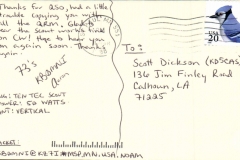 Thanks for QSO, had a little
trouble copying you with
all the QRM. Glad to
hear the scout worlds first
on CW! Hope to hear from
you again soon. Thanks
again
72's
KB0MNI
RIG: TEN TEC SCOUT
POWER: 50 WATTS
ANT: VERTICAL
PACKET:
KB0MNI@KE7I#MSP.MN.USA.NOAM
To:
Scott Dickson (KD5CAS)
136 Jim Finley Road
Calhoun, LA
71225
USA
20